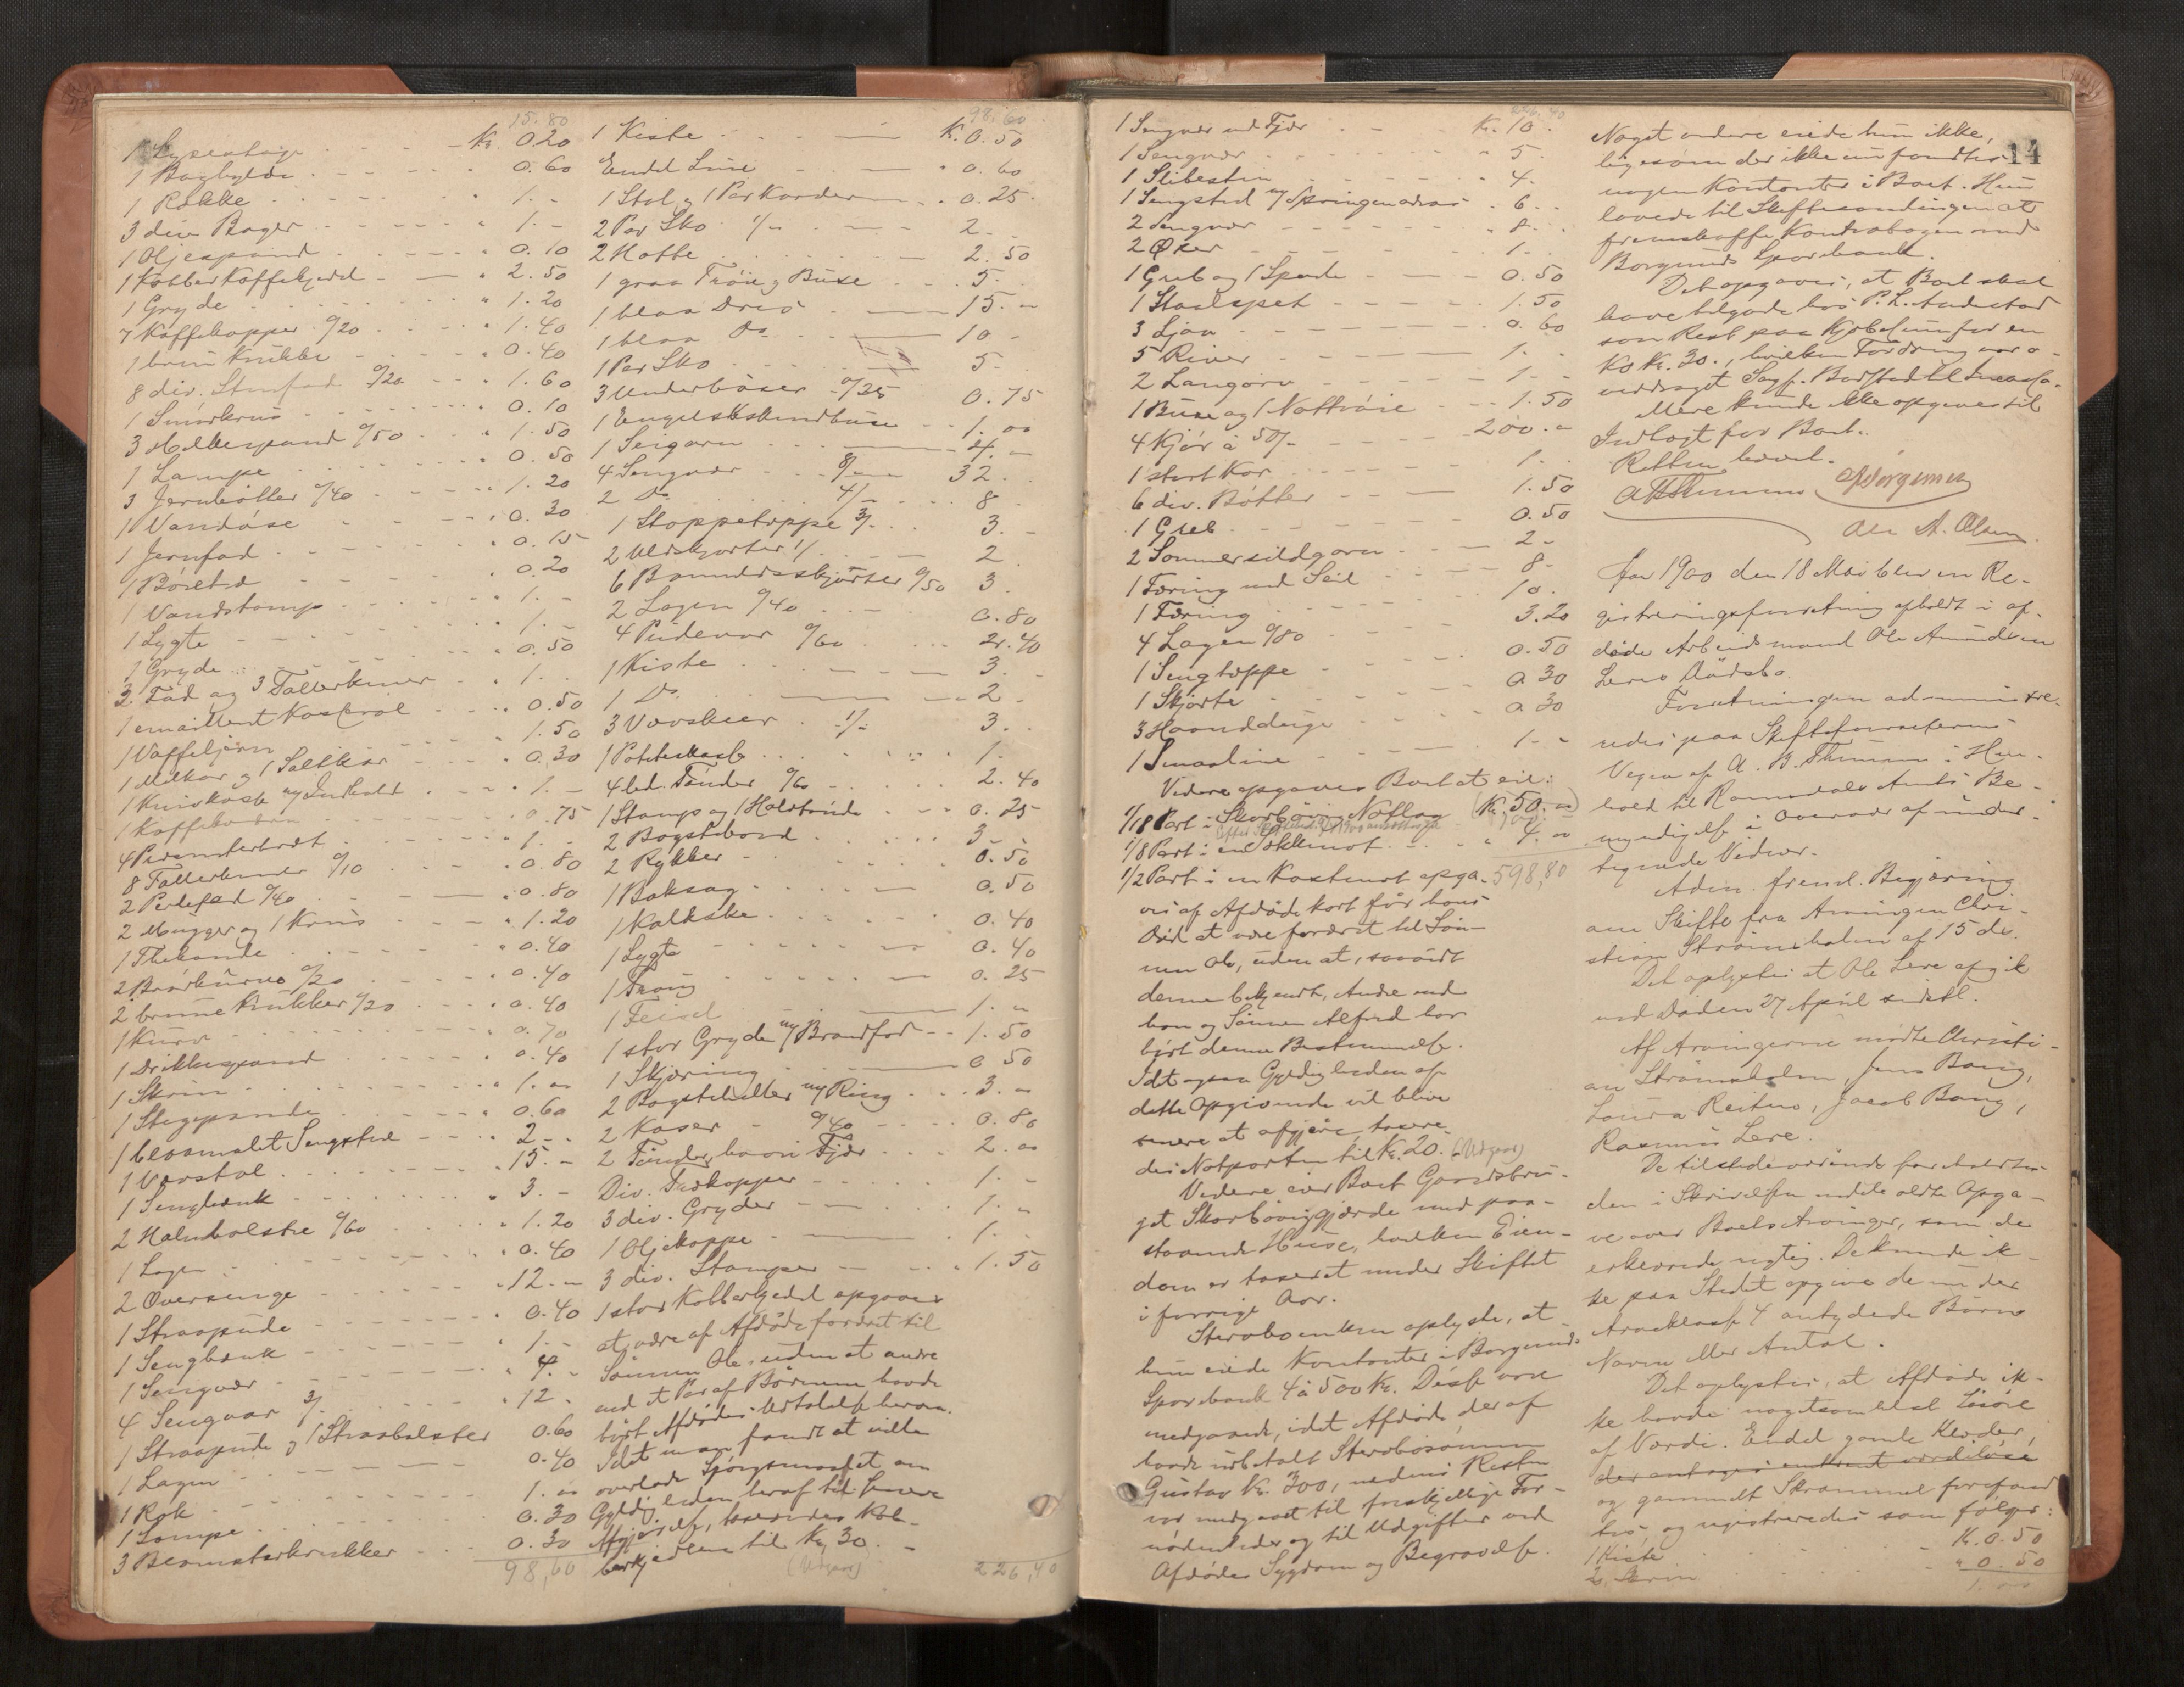 15.80
1 Lysestage Kr. 0.20
1 Boghylde 0.60
1 Rokke 1. -
3 div. Bøger 1. -
1 Oljespand 0.10
1 Kobber Kaffekjedel 2.50
1 Gryde 1.20
7 Kaffekopper 0/20 1.40
1 brun Krukke 0.40
8 div. Stenfad 0/20 1.60
1 Smørkrus 0.10
3 Melkespand 0/50 1.50
1 Lampe 0.50
3 Jernbøtter 0/40 1.20
1 Vandøse 0.30
1 Jernfad 0.15
1 Børetræ 0.20
1 Vandstamp 1. -
1 Lygte 1. -
1 Gryde 0.50
2 Fad og 3 Tallerkener 1. -
1 emailleret Kasserol 0.50
1 Vaffeljern 1.50
1 Melkar og 1 Saltkar 0.30
1 Knivkasse m/ Indhold 1. -
1 Kaffebrænder 0.75
4 1. -
8 Tallerkener 0/10 0.80
2 Perlefad 0/40 0.80
2 Mugger og 1 Krus 1.20
1 Thekande 0.40
2 Brødkurve 0/20 0.40
2 brune Krukker 0/20 0.40
1 Kurv 0.70
1 Drikkespand 0.40
1 Skrin 1. -
1 Stegepande 0.60
1 blaamalet Sengsted 2. -
1 Vævstol 15. -
1 Sengbænk 3. -
2 Halmbolstre 0/60 1.20
1 Lagen 0.40
2 Oversenge 12. -
1 Straapude 0.40
1 Sengbænk 1. -
1 Sengvær 4. -
4 Sengvær 3/ 12. -
1 Straapude og 1 Straabolster 0.60
1 Lagen 0.40
1 Rok 1. -
1 Lampe 0.30
3 Blomsterkrukker 0.30
98,60
98.60
1 Kiste Kr. 0.50
Endel Line 0.60
1 Stol og 1 Par Karder 0.25
2 Par Sko 1/- 2. -
2 Hatte 2.50
1 graa Trøie og Buxe 5. -
1 blaa Dres 15. -
1 blaa Do 10 -
1 Par Sko 5. -
3 Underbuxer 0/25 0.75
1 Engelskskindbuxe 1. -
1 Seigarn 4. -
4 Sengvær 8/- 32. -
2 Do 4/- 8
1 Stoppetæppe 3/- 3. -
2 Uldskjorter 1/ 2
6 Bomuldsskjorter 0/50 3.
2 Lagen 0/40 0.80
4 Pudevar 0/60 2.40
1 Kiste 3. -
1 Do 2. -
3 Vævskeer 1/- 3. -
1 1. -
4 led. Tønder 0/60 2.40
1 Stamp og 1 Halvtønde 0.25
2 Bagstebord 3 -
2 Rykker 0.50
1 Baksag 0.50
1 Kalkske 0.40
1 Lygte 0.40
1 Traug 0.25
1 Feisel 1. -
1 stor Gryde m/ Brandfod 1.50
1 Skjæring 0.50
2 Bagsteheller m/ Ring 3. -
2 Kaser 0/40 0.80
2 Tønder, hvori Fjær 2. -
Div. Trækopper 1. -
3 div. Gryder 1. -
1 Oljekappe 1. -
3 div. Stamper 1.50
1 stor Kobberkjedel opgaves
at være af Afdøde foræret til
Sønnen Ole, uden at andre
end et Par af Børnene havde
hørt Afdødes Udtalelse herom.
Idet man fandt at ville
overlade Spørgsmaalet om
Gyldigheden heraf til senere
Afgjørelse, taxeredes Kob-
berkjedlen til Kr. 30. -
(Udgaar) 226,40
226.40
1 Sengvær med Fjær Kr. 10.
1 Sengvær 5.
1 Slibesten 4.
1 Sengsted m/ Springmadras 6. -
2 Sengvær 8. -
2 Øxer 1. -
1 Greb og 1 Spade 0.50
1 Staalspet 1.50
3 Ljaa 0.60
5 River 1. -
2 Langorv 1. -
1 Buxe og 1 Nattrøie 1.50
4 Kjør à 50/- 200. -
1 stort Kar 1. -
6 div. Bøtter 1.50
1 Greb 0.50
2 Sommersildgarn 2 -
1 Færing med Seil 8 -
1 Færing 10. -
4 Lagen 0/80 3.20
1 Sengtæppe 0.50
1 Skjorte 0.30
3 Haandduge 0.30
1 Smaaline 1. -
Videre opgaves Boet at eie:
1/18 Part i Skorbøvig Notlag (Kr. 50. -)
1/8 Part i en 4. -
1/2 Part i en Kastenot opga- 598,80
ves af Afdøde kort før hans
Død at være foræret til Søn-
nen Ole, uden at, saavidt
denne bekjendt, Andre end
han og Sønnen Alfred har
hørt denne Bestemmelse.
Idet ogsaa Gyldigheden af
dette Opgivende vil blive
senere at afgjøre, taxere-
des Notparten til Kr. 20. - (Udgaar)
Videre eier Boet Gaardsbru-
get Skorbøvigjerde med paa-
staaende Huse, hvilken Eien-
dom er taxeret under Skiftet
i forrige Aar.
Stervboenken oplyste, at
hun eiede Kontanter i Borgunds
Sparebank 4 à 500 Kr. Disse vare
medgaaede, idet Afdøde deraf
havde udbetalt Stervbosønnen
Gustav Kr. 300, medens Resten
var medgaaet til forskjellige For-
nødenheder og til Udgifter ved
Afdødes Sygdom og Begravelse.
14
Noget andere eiede hun ikke,
ligesom der ikke nu fandtes
nogen Kontanter i Boet. Hun
lovede til Skiftesamlingen at
fremskaffe Kontrabogen med
Borgunds Sparebank.
Det opgaves, at Boet skal
have tilgode hos P. L. Aadestad
som Rest paa Kjøbesum for en
Ko Kr. 30., hvilken Fordring var o-
verdraget Sagf. Barstad til Incasso.
Mere kunde ikke opgives til
Indtægt for Boet.
Retten hævet.
Ole A. Olsen.
Aar 1900 den 18 Mai blev en Re-
gistreringsforretning afholdt i af-
døde Arbeidsmand Ole Amundsen
Leres Dødsbo.
Forretningen administre-
redes paa Skifteforvalterens
Vegne af A. B. Thunem i Hen-
hold til Romsdals Amts Be-
myndigelse i Overvær af under-
tegnede Vidner.
Adm. freml. Begjæring
om Skifte fra Arvingen Chri-
stian Strømsholm af 15 ds.
Det oplystes at Ole Lere afgik
ved Døden 27 April sidstl.
Af Arvingerne mødte Christi-
an Strømsholm, Jens Bang,
Laura Reiten, Jacob Bang,
Rasmus Lere.
De tilstedeværende foreholdtes
den i Skrivelsen meddelte Opga-
ve over Boets Arvinger, som de
erkjendte rigtig. De kunde ik-
ke paa Stedet opgive de under
Arveklasse 4 antydede Børns
Navn eller Antal.
Det oplystes, at Afdøde ik-
ke havde nogetsomhelst Løsøre
af Værdi. Endel gamle Klæder,
der antages omtrent værdiløse
og gammelt Skrammel forefand-
tes og registreredes som følger:
1 Kiste Kr. 0.50
2 Skrin " 0.50
1.00